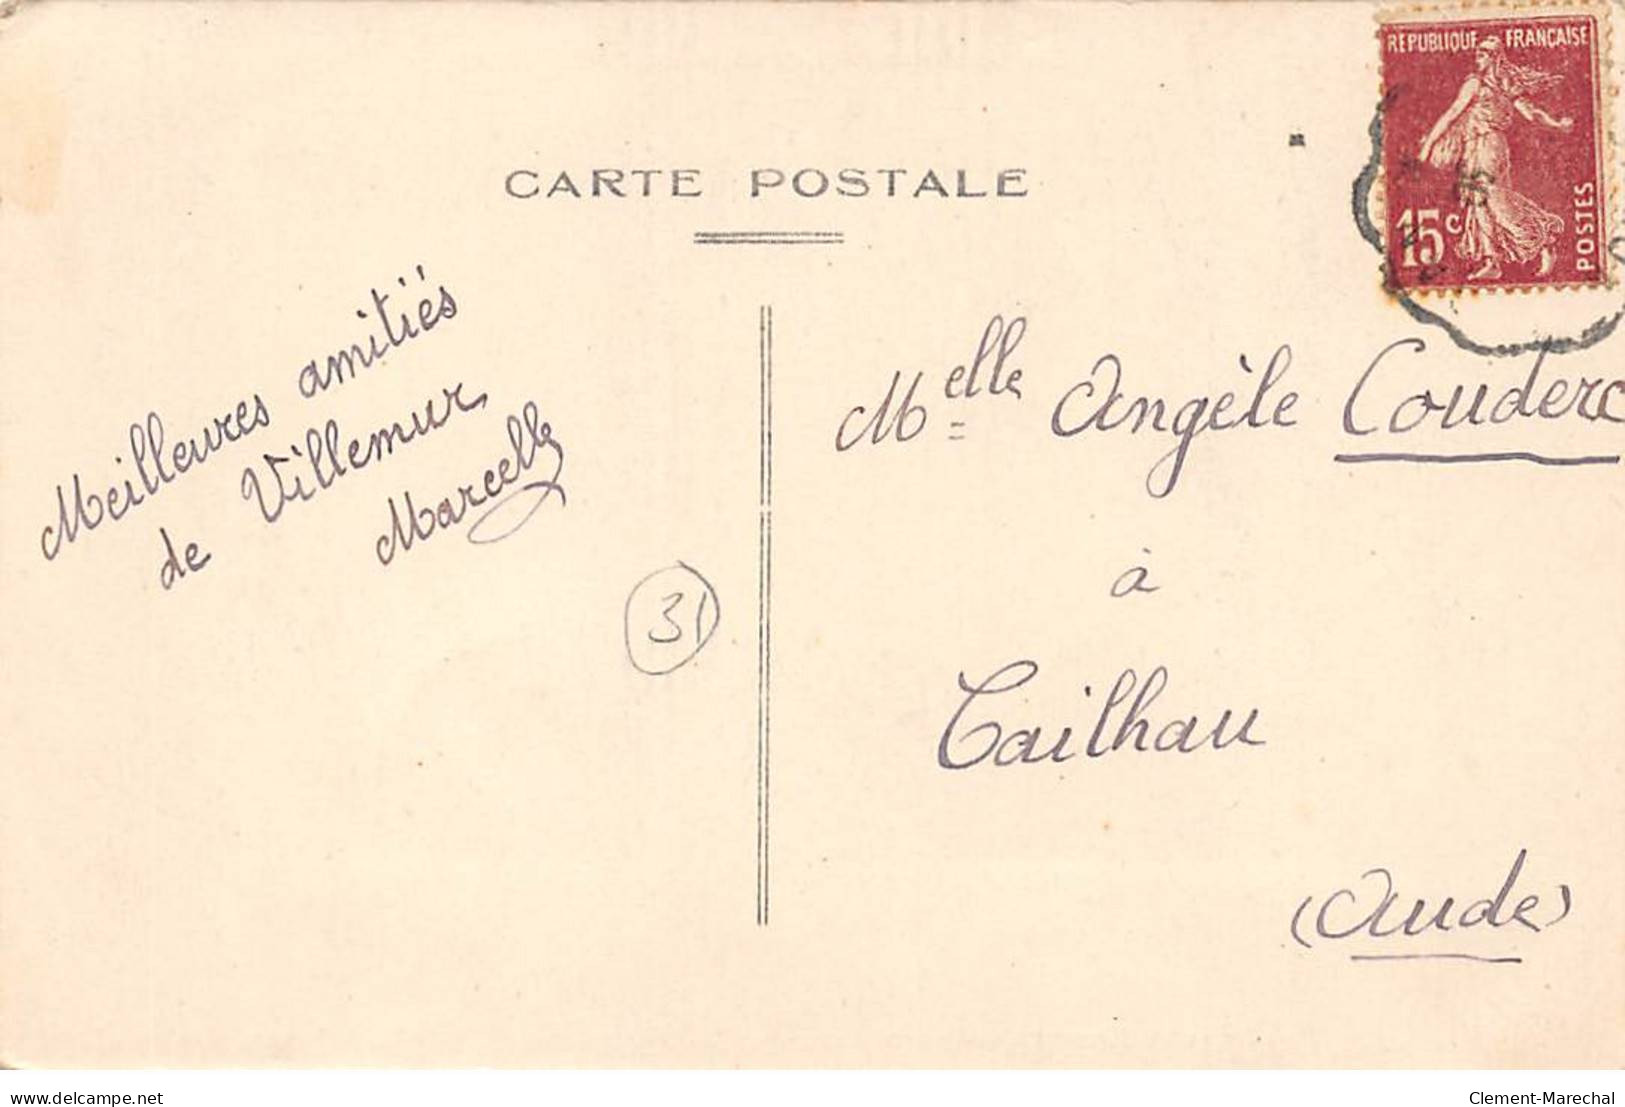 CARTE POSTALE
RÉPUBLIQUE FRANÇAISE
15c
POSTES
Meilleures amitiés
de Villemur
Marcelle
31
Melle Angèle Couderc
à
Cailhau
(Aude)
www.delcampe.net
Clement-Marechal